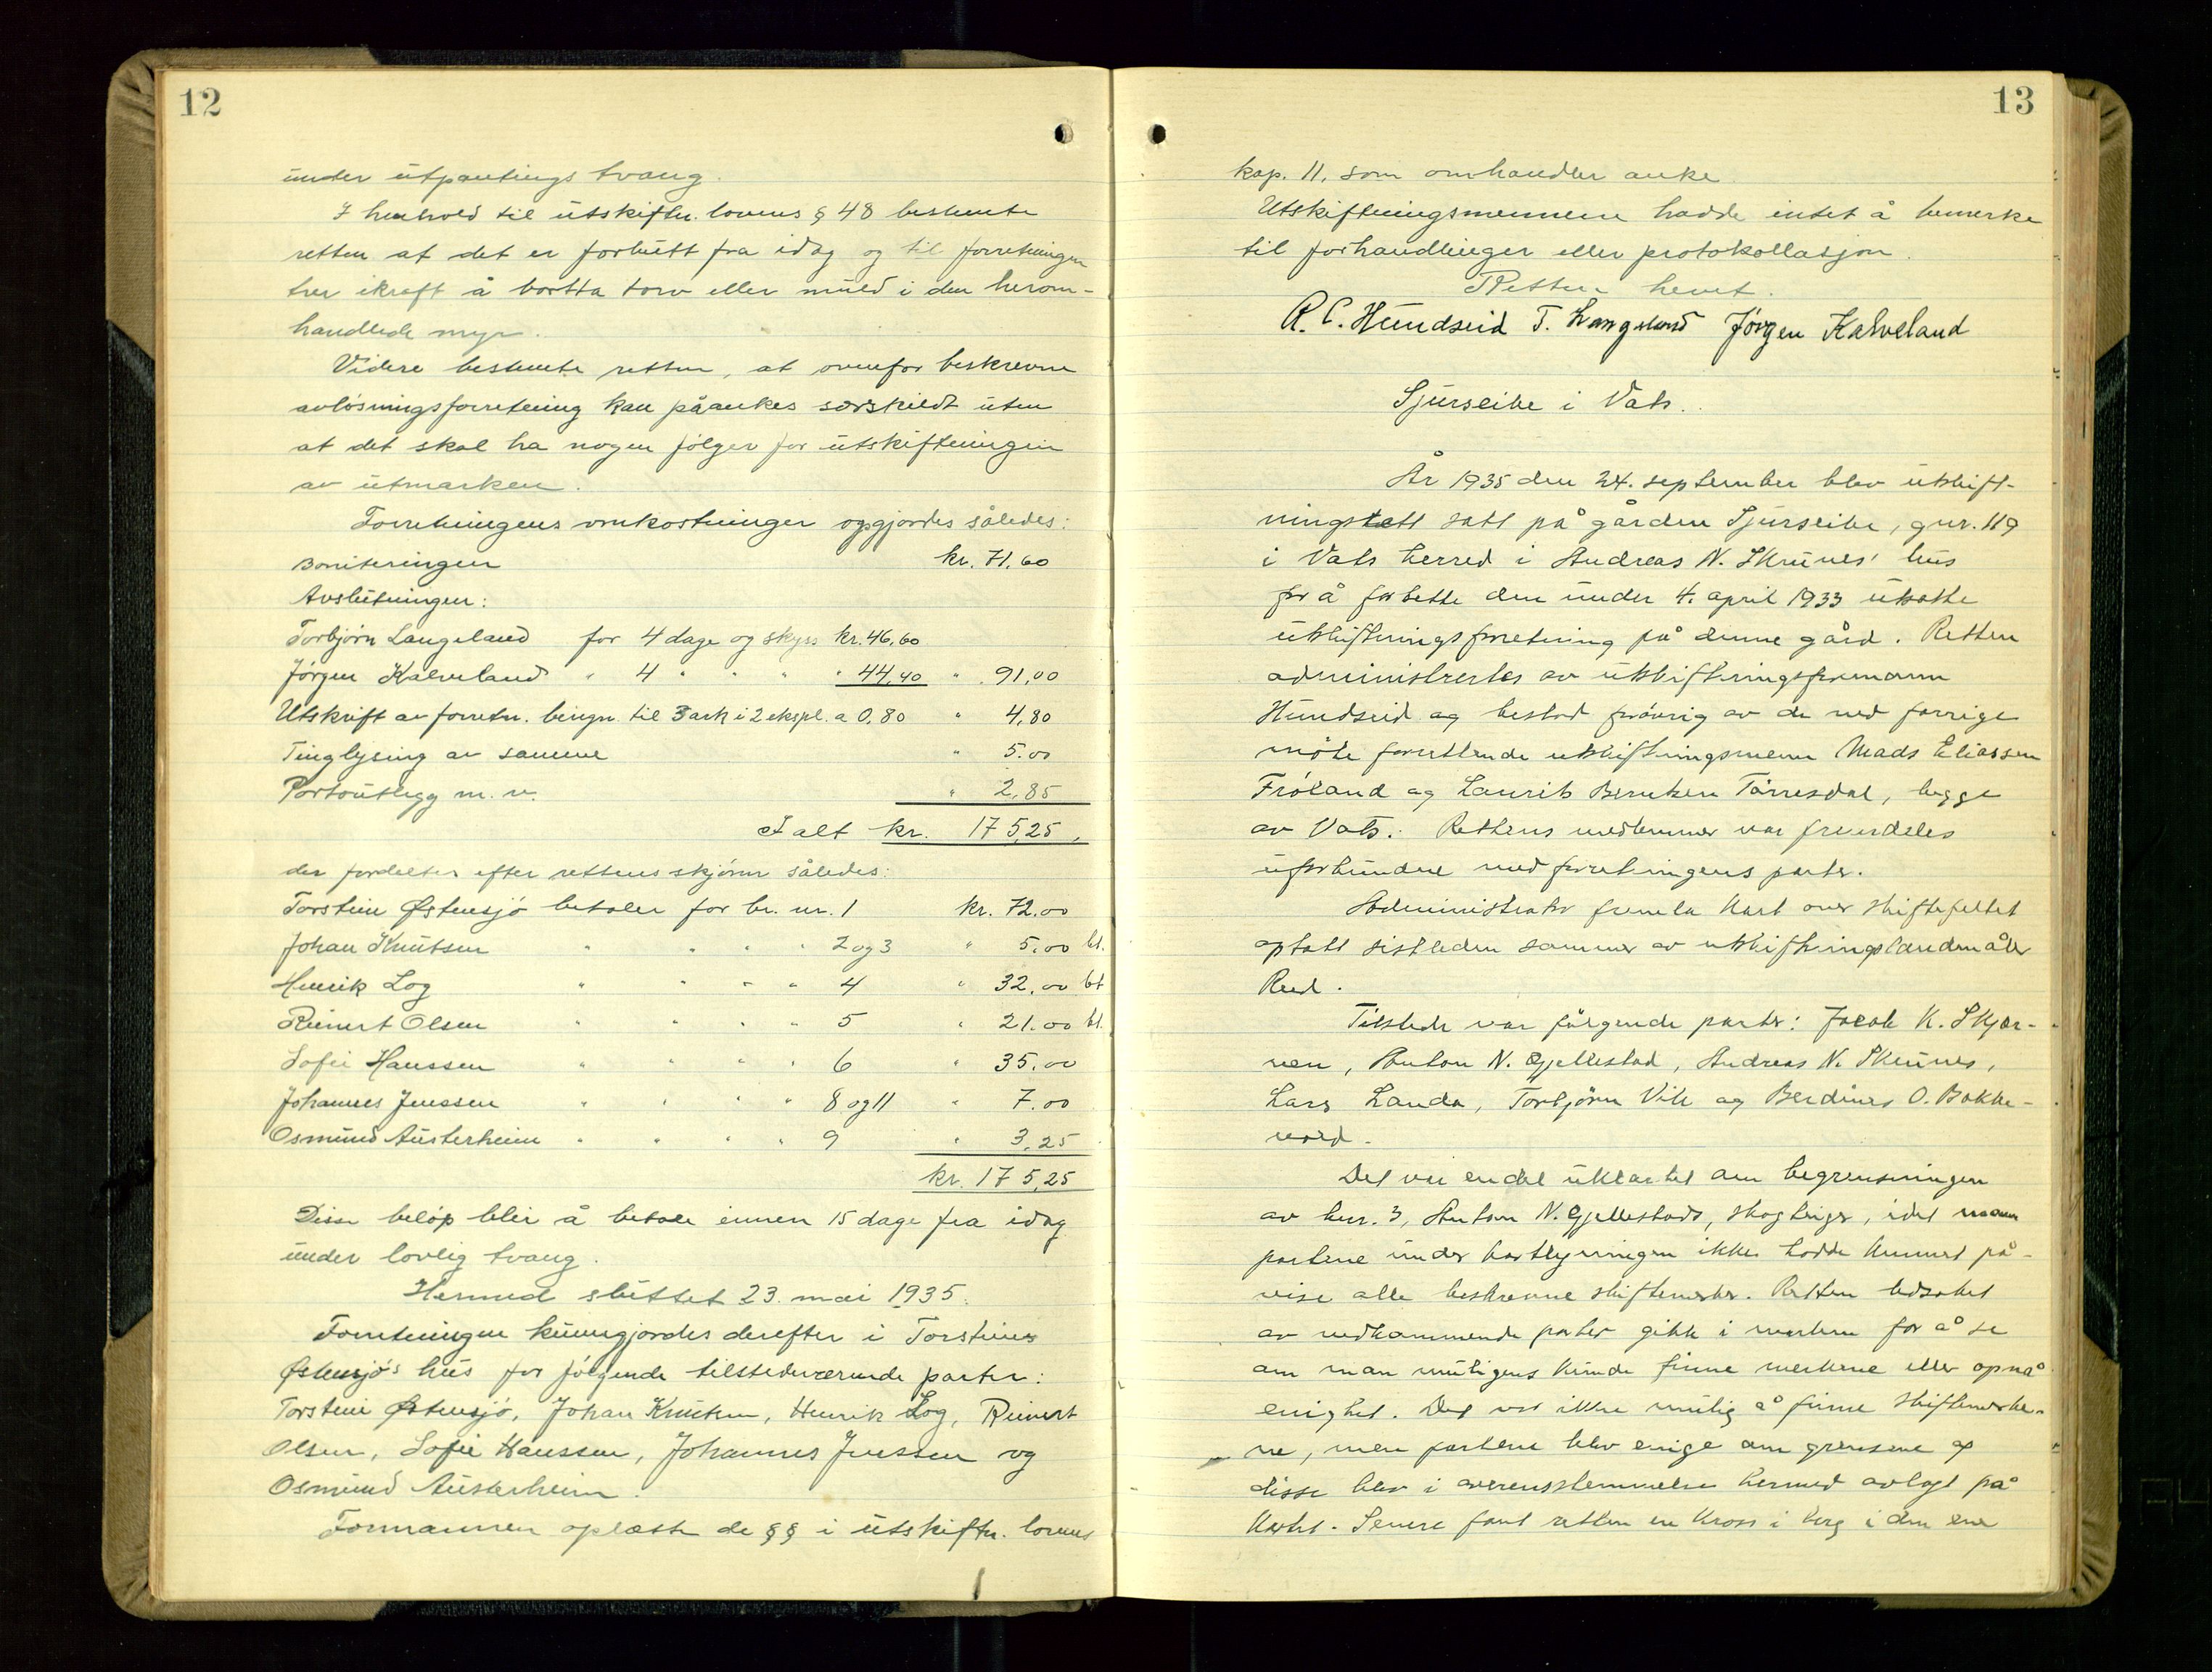 12
under utpantings tvang.
I henhold til utskiftn. lovens § 48 bestemte
retten at det er forbutt fra idag og til forretningen
trer ikraft å bortta torv eller muld i den herom-
handlede myr.
Videre bestemte retten, at ovenfor beskrevne
avløsningsforretning kan påankes særskildt uten
at det skal ha nogen følger for utskiftningen
av utmarken.
Forretningens omkostninger opgjordes således:
Boniteringen kr. 71.60
Avslutningen:
Torbjørn Langeland for 4 dage og skyss kr. 46,60
Jørgen Kalveland " 4 " " " " 44,40 " 91,00
Utskrift av forretn. beregn. til 3 ark i 2 ekspl. a 0,80 " 4,80
Tinglysing av samme " 5.00
Portoutlegg m. v. " 2,85
I alt kr. 175,25,
der fordeltes efter rettens skjønn således:
Torstein Østensjø betaler for br. nr. 1 kr. 72.00
Johan Knutsen " " " " 2 og 3 " 5.00 bt.
Henrik Log " " " " 4 " 32.00 bt
Reinert Olsen " " " " 5 " 21.00 bt.
Sofie Hanssen " " " " 6 " 35.00
Johannes Jenssen " " " " 8 og 11 " 7.00
Osmund Austerheim " " " " 9 " 3,25
kr. 175,25
Disse beløp blir å betale innen 15 dage fra idag
under lovlig tvang.
Hermed sluttet 23. mai 1935.
Forretningen kunngjordes derefter i Torsteins
Østensjø's hus for følgende tilstedeværende parter:
Torstein Østensjø, Johan Knutsen, Henrik Log, Reinert
Olsen, Sofie Hanssen, Johannes Jenssen og
Osmund Austerheim.
Formannen oplæste de §§ i utskiftn. lovens
13
kap. 11, som omhandler anke.
Utskiftningsmennene hadde intet å bemerke
til forhandlinger eller protokollasjon.
Retten hevet.
R. C. Hundseid T. Langeland Jørgen Kalveland
Sjurseike i Vats.
År 1935 den 24. september blev utskift-
ningsrett satt på gården Sjurseike, gnr. 119
i Vats herred i Andreas N. Skeunes' hus
for å forsette den under 4. april 1933 utsatte
utskiftningsforretning på denne gård. Retten
administrertes av utskiftningsformann
Hundseid og bestod forøvrig av de ved forrige
møte forrettende utskiftningsmenn Mads Eliassen
Frøland og Laurits Berntsen Tørresdal, begge
av Vats. Rettens medlemmer var fremdeles
uforbundne med forretningens parter.
Administrator fremla kart over skiftefeltet
optatt sistleden sommer av utskiftningslandmåler
Rud.
Tilstede var følgende parter: Jacob K. Skjær-
ven, Anton N. Gjellestad, Andreas N. Skeunes,
Lars Landa, Torbjørn Vik og Berdines O. Bakke-
vord.
Det var endel uklarhet om begrensningen
av bnr. 3, Anton N. Gjellestads, skogteiger, idet
partene under kartlegningen ikke hadde kunnet på-
vise alle beskrevne skiftemerker. Retten ledsaget
av vedkommende parter gikk i marken for å se
om man muligens kunde finne merkene eller opnå
enighet. Det var ikke mulig å finne skiftemerke-
ne, men partene blev enige om grensene og
disse blev i overensstemmelse hermed avlagt på
kartet. Senere fant retten en kross i berg i den ene